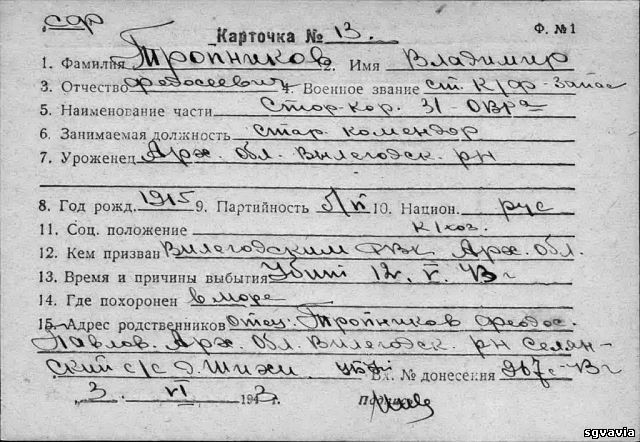 сдр
Карточка № 13. Ф. №1
1. Фамилия Тропников 2. Имя Владимир
3. Отчество Федосеевич 4. Военное звание ст. к/ф-запас
5. Наименование части Стор-Кор. 31-ОВРа
6. Занимаемая должность стар. комендор
7. Уроженец Арх. обл. Вилегодск. рн
8. Год рожд. 1915 9. Партийность б/п 10. Национ. рус
11. Соц. положение к/хоз.
12. Кем призван Вилегодским РВК Арх. обл.
13. Время и причины выбытия Убит 12. V. 43 г
14. Где похоронен в море
15. Адрес родственников отец: Тропников Федос.
Павлов. Арх. обл. Вилегодск. рн Селян-
ский с/с д. Шихи Вх. № донесения 967с-43г
3. VI 1943 г. Подпись
sgvavia